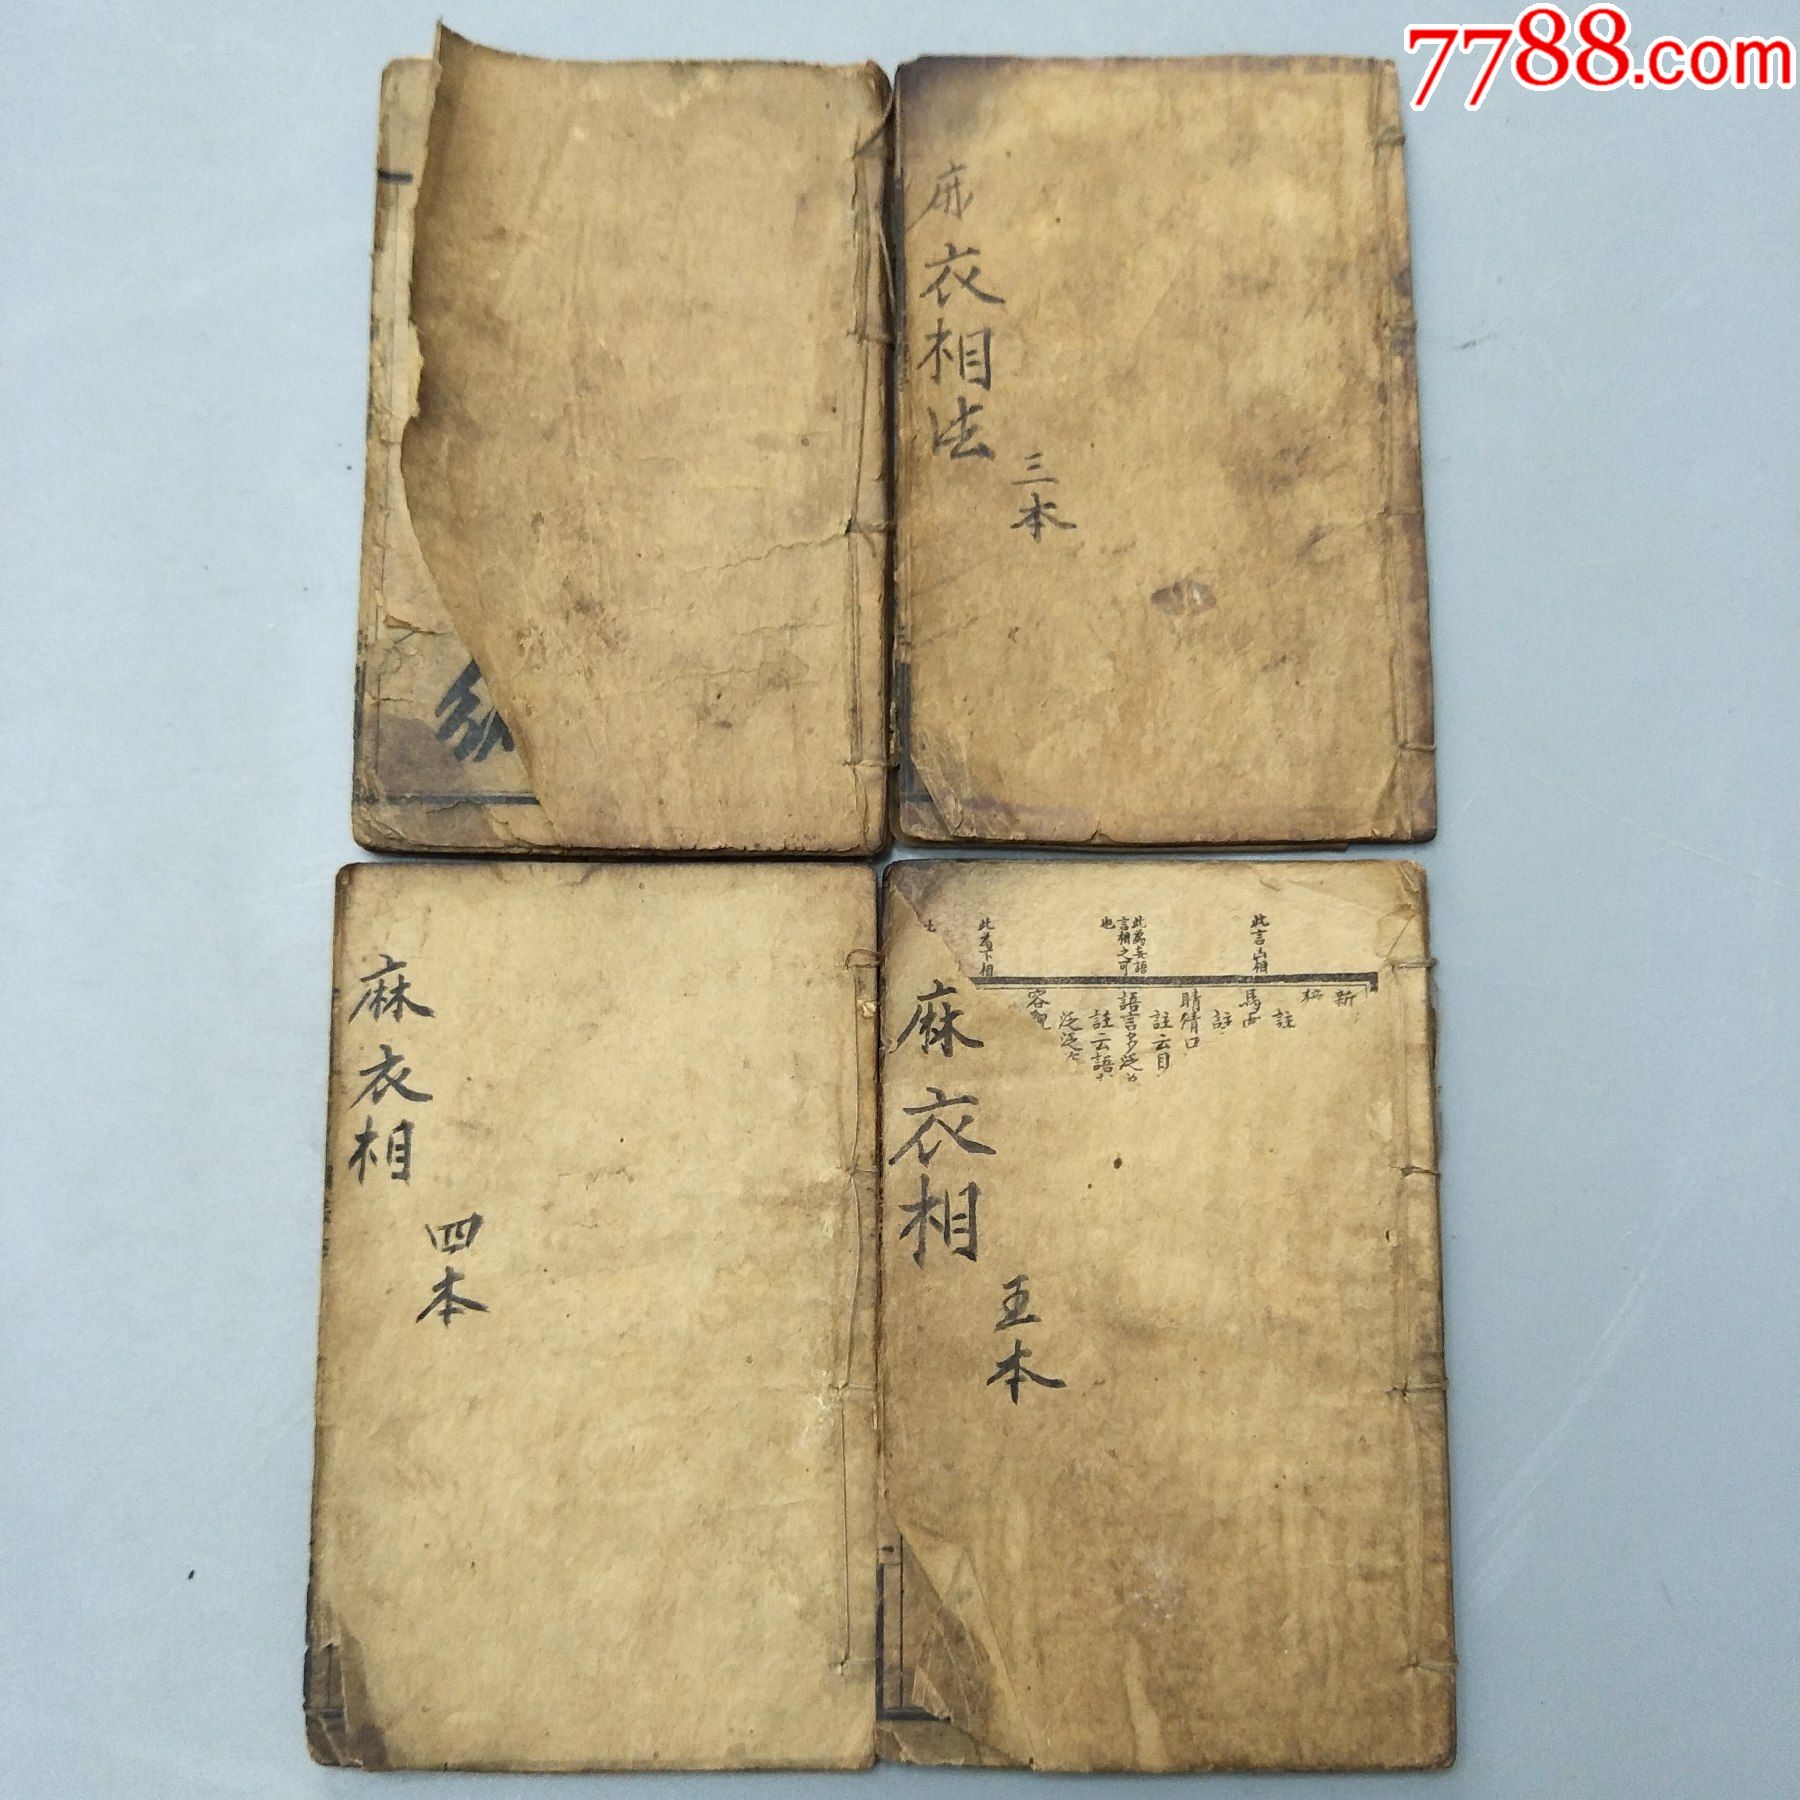 7788.com
麻衣相法
三本
麻衣相
四本
麻衣相
五本
此言凶相
此為妄語
言相之可
也
此為下相
新
註
馬面
註
睛
口
註云目
語言多泛
註云語
泛泛
容貌